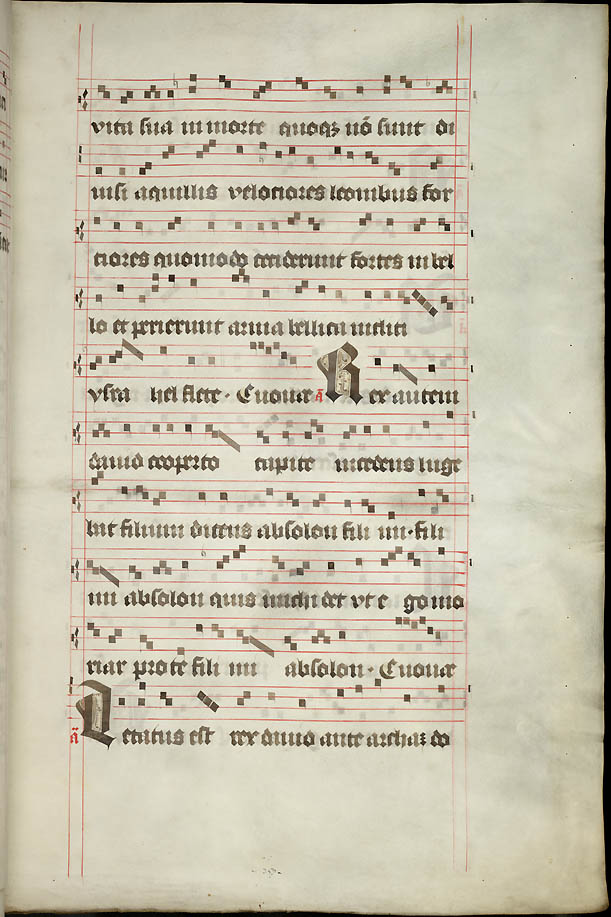 vita sua in morte quoqꝫ nō sunt di
uisi aquilis velociores leonibus for
ciores quomodo ceciderunt fortes in bel
lo et perierunt arma bellica incliti
ysra hel flete · Euouae ā Rex autem
dauid cooperto capite incedens luge
bat filium dicens absolon fili mi · fili
mi absolon quis michi det vt e go mo
riar pro te fili mi absolon · Euouae
ā Letatus est rex dauid ante archaꝫ do